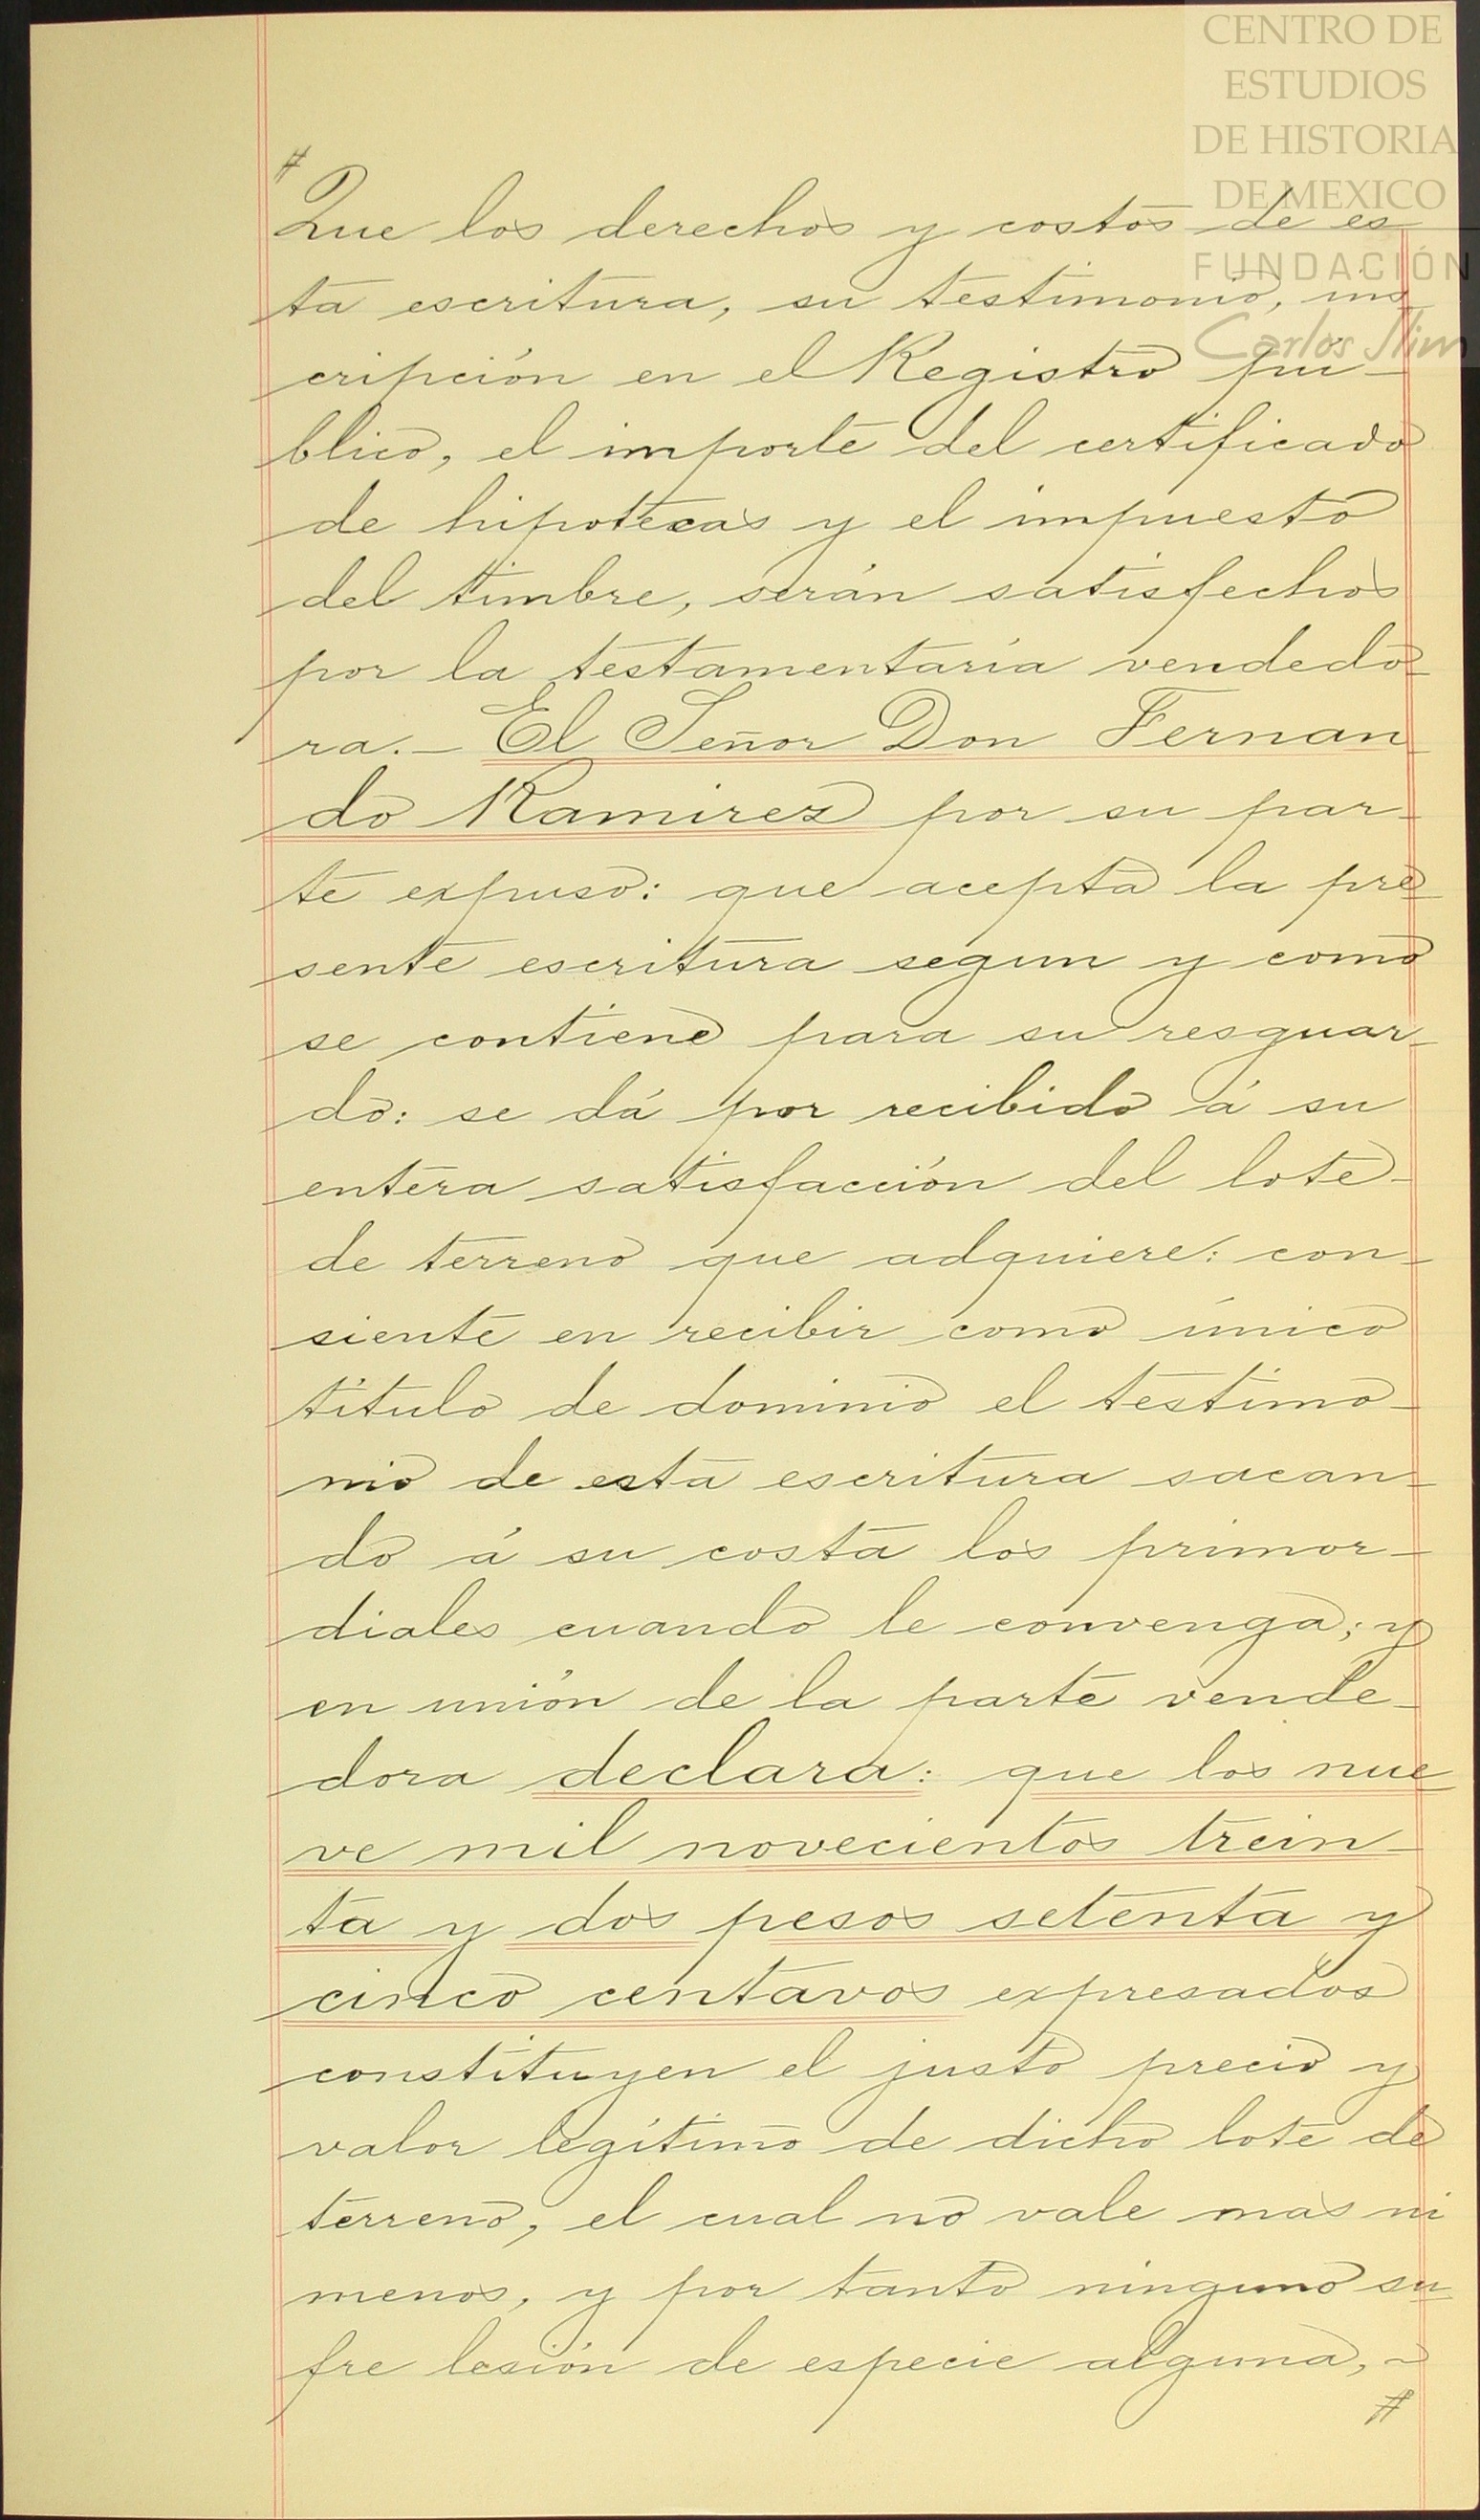 CENTRO DE
ESTUDIOS
DE HISTORIA
DE MEXICO
FUNDACIÓN
Carlos Slim
#
Que los derechos y costos de es
ta escritura, su testimonio, ins
cripción en el Registro pú-
blico, el importe del certificado
de hipotecas y el impuesto
del timbre, serán satisfechos
por la testamentaría vendedo-
ra.- El Señor Don Fernan-
do Ramirez por su par-
te expuso: que acepta la pre-
sente escritura segun y como
se contiene para su resguar-
do: se dá por recibido á su
entera satisfacción del lote-
de terreno que adquiere: con-
siente en recibir como único
título de dominio el testimo-
nio de esta escritura sacan-
do á su costa los primor-
diales cuando le convenga; y
en unión de la parte vende-
dora declara: que los nue-
ve mil novecientos trein-
ta y dos pesos setenta y
cinco centavos expresados
constituyen el justo precio y
valor legítimo de dicho lote de
terreno, el cual no vale mas ni
menos, y por tanto ninguno su-
fre lesión de especie alguna, ~
#